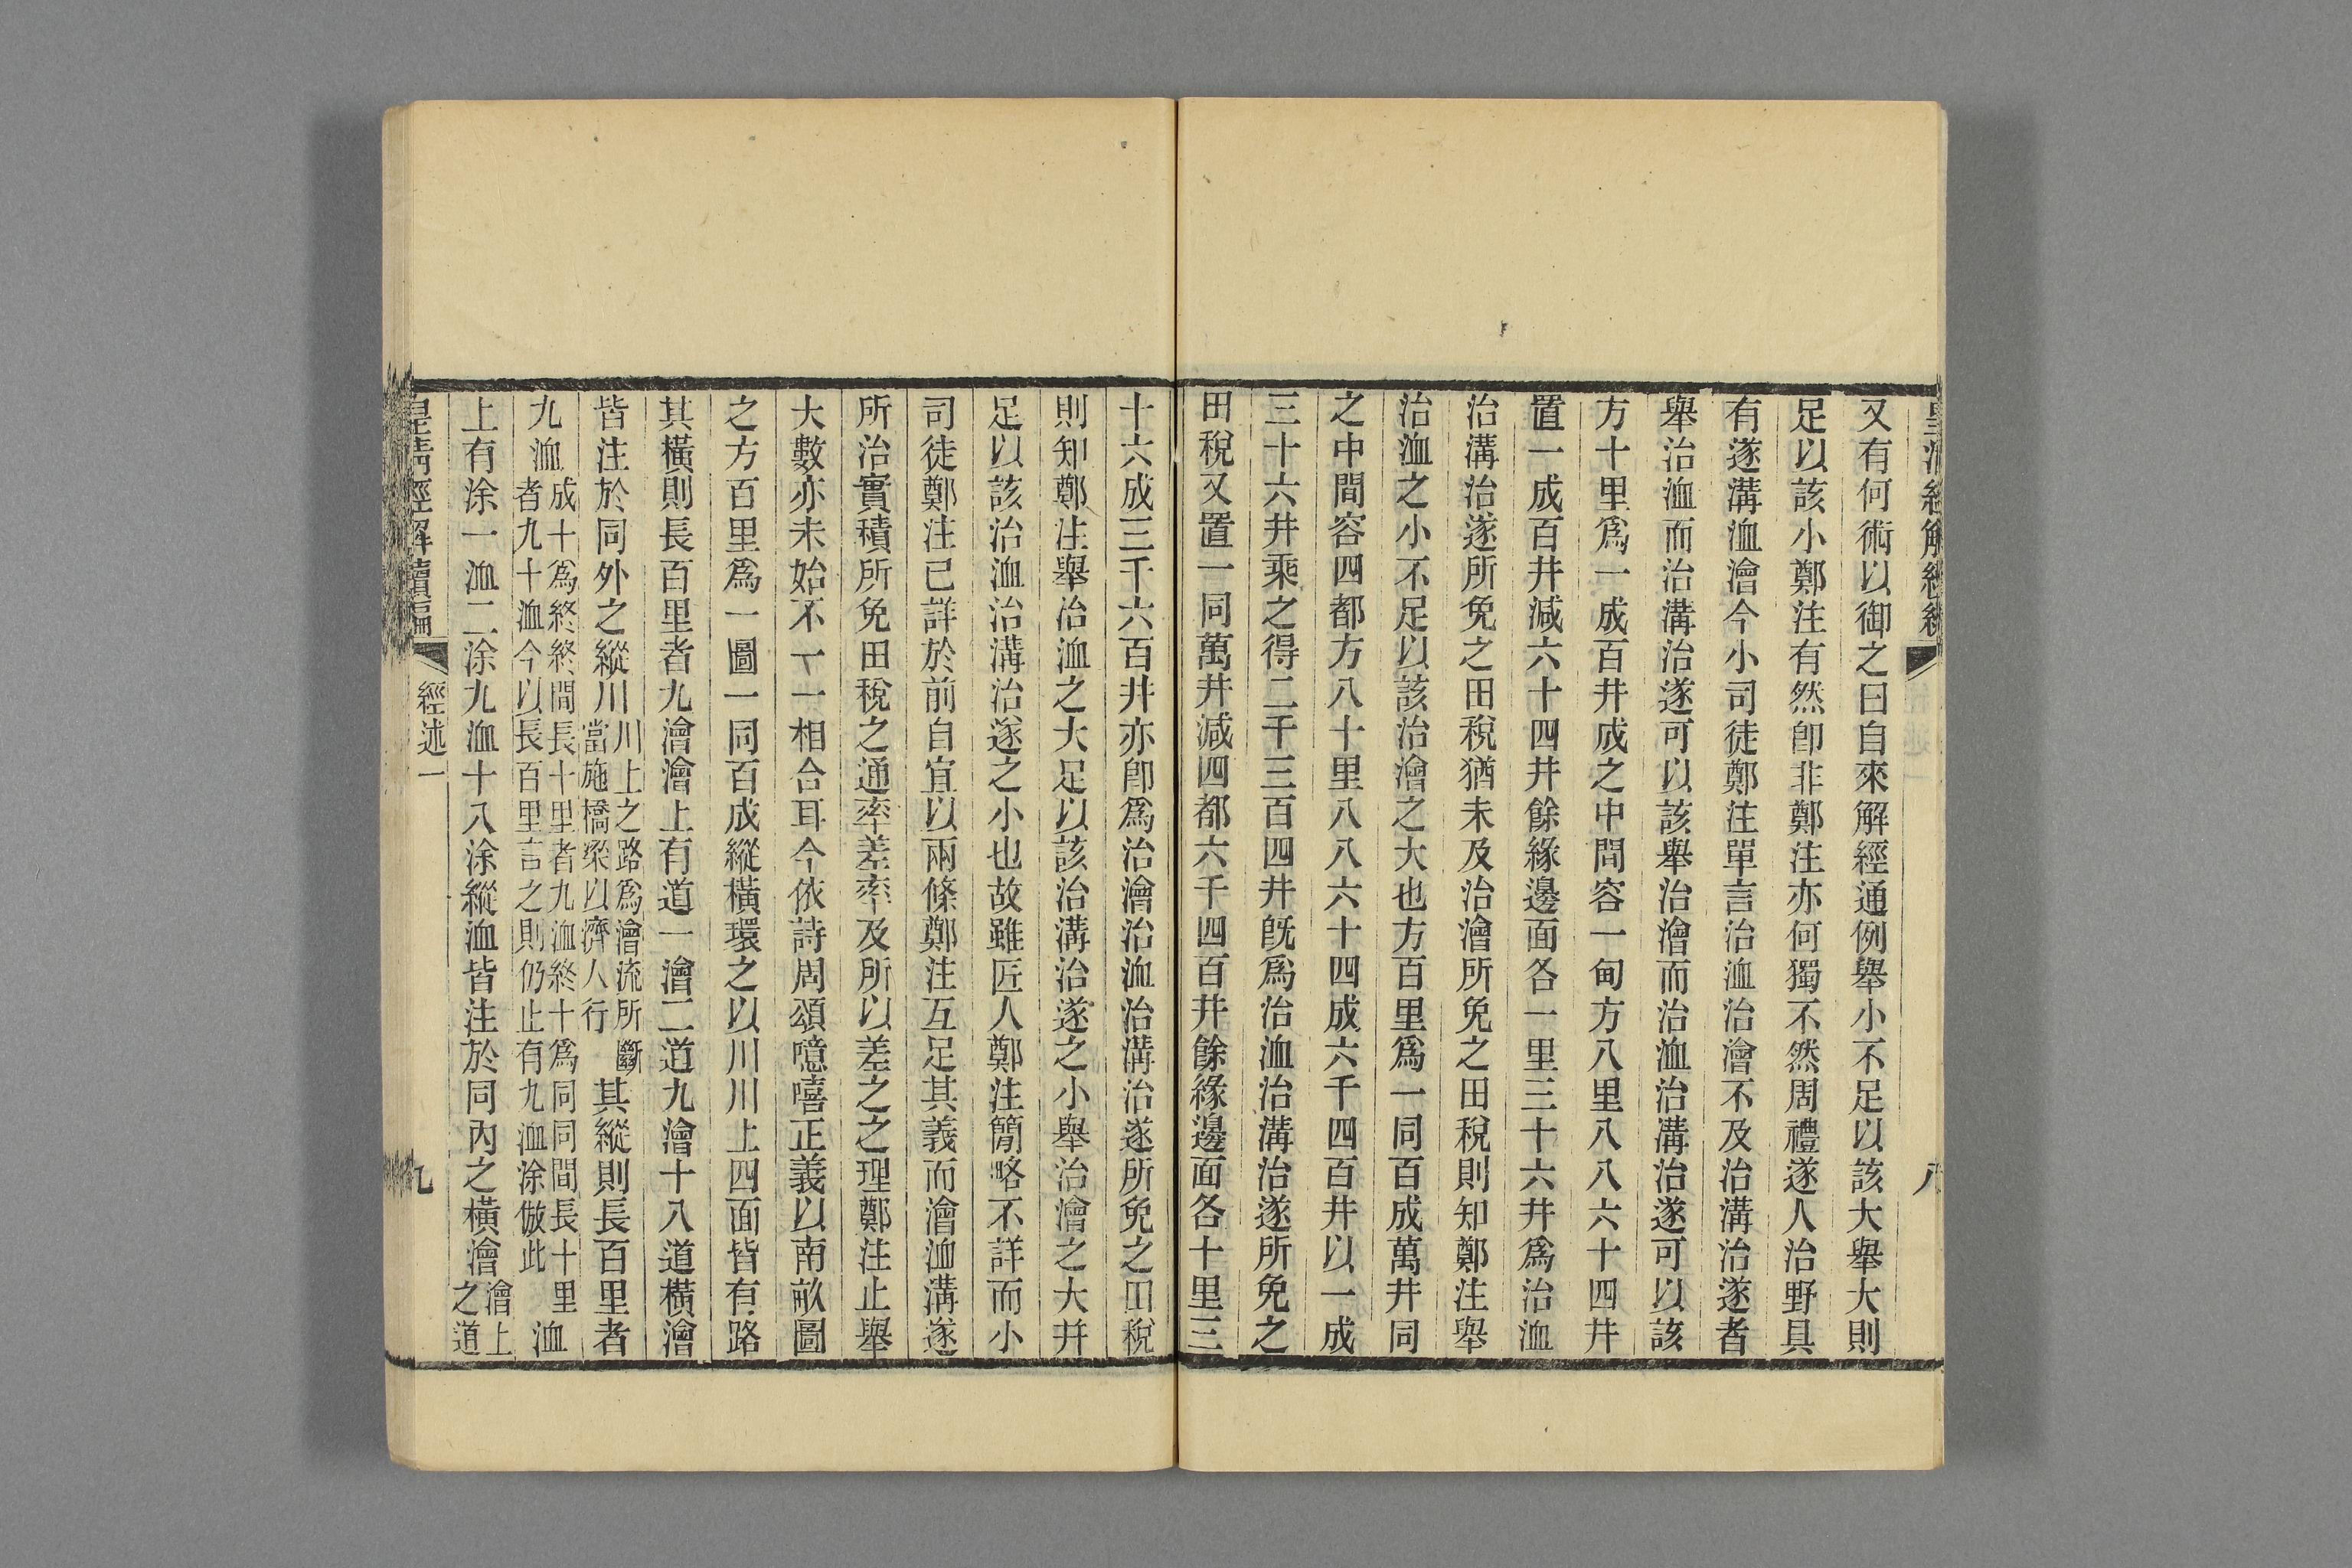 又有何術以御之曰自來解經通例舉小不足以該大舉大則
足以該小鄭注有然卽非鄭注亦何獨不然周禮遂人治野具
有遂溝洫澮今小司徒鄭注單言治洫治澮不及治溝治遂者
舉治洫而治溝治遂可以該舉治澮而治洫治溝治遂可以該
方十里爲一成百井成之中間容一甸方八里八八六十四井
置一成百井減六十四井餘緣邊面各一里三十六井爲治洫
治溝治遂所免之田稅猶未及治澮所免之田稅則知鄭注舉
治洫之小不足以該治澮之大也方百里爲一同百成萬井同
之中間容四都方八十里八八六十四成六千四百井以一成
三十六井乘之得二千三百四井旣爲治洫治溝治遂所免之
田稅又置一同萬井減四都六千四百井餘緣邊面各十里三
十六成三千六百井亦卽爲治澮治洫治溝治遂所免之田稅
則知鄭注舉治洫之大足以該治溝治遂之小舉治澮之大幷
足以該治洫治溝治遂之小也故雖匠人鄭注簡略不詳而小
司徒鄭注已詳於前自宜以兩條鄭注互足其義而澮洫溝遂
所治實積所免田稅之通率差率及所以差之之理鄭注止舉
大數亦未始不一一相合耳今依詩周頌噫嘻正義以南畝圖
之方百里爲一圖一同百成縱橫環之以川川上四面皆有路
其橫則長百里者九澮澮上有道一澮二道九澮十八道橫澮
皆注於同外之縱川川上之路爲澮流所斷當施橋梁以濟人行其縱則長百里者
九洫成十爲終終間長十里者九洫終十爲同同間長十里洫者九十洫今以長百里言之則仍止有九洫涂倣此洫
上有涂一洫二涂九洫十八涂縱洫皆注於同內之橫澮澮上之道
皇清經解續編
經述一
九
八